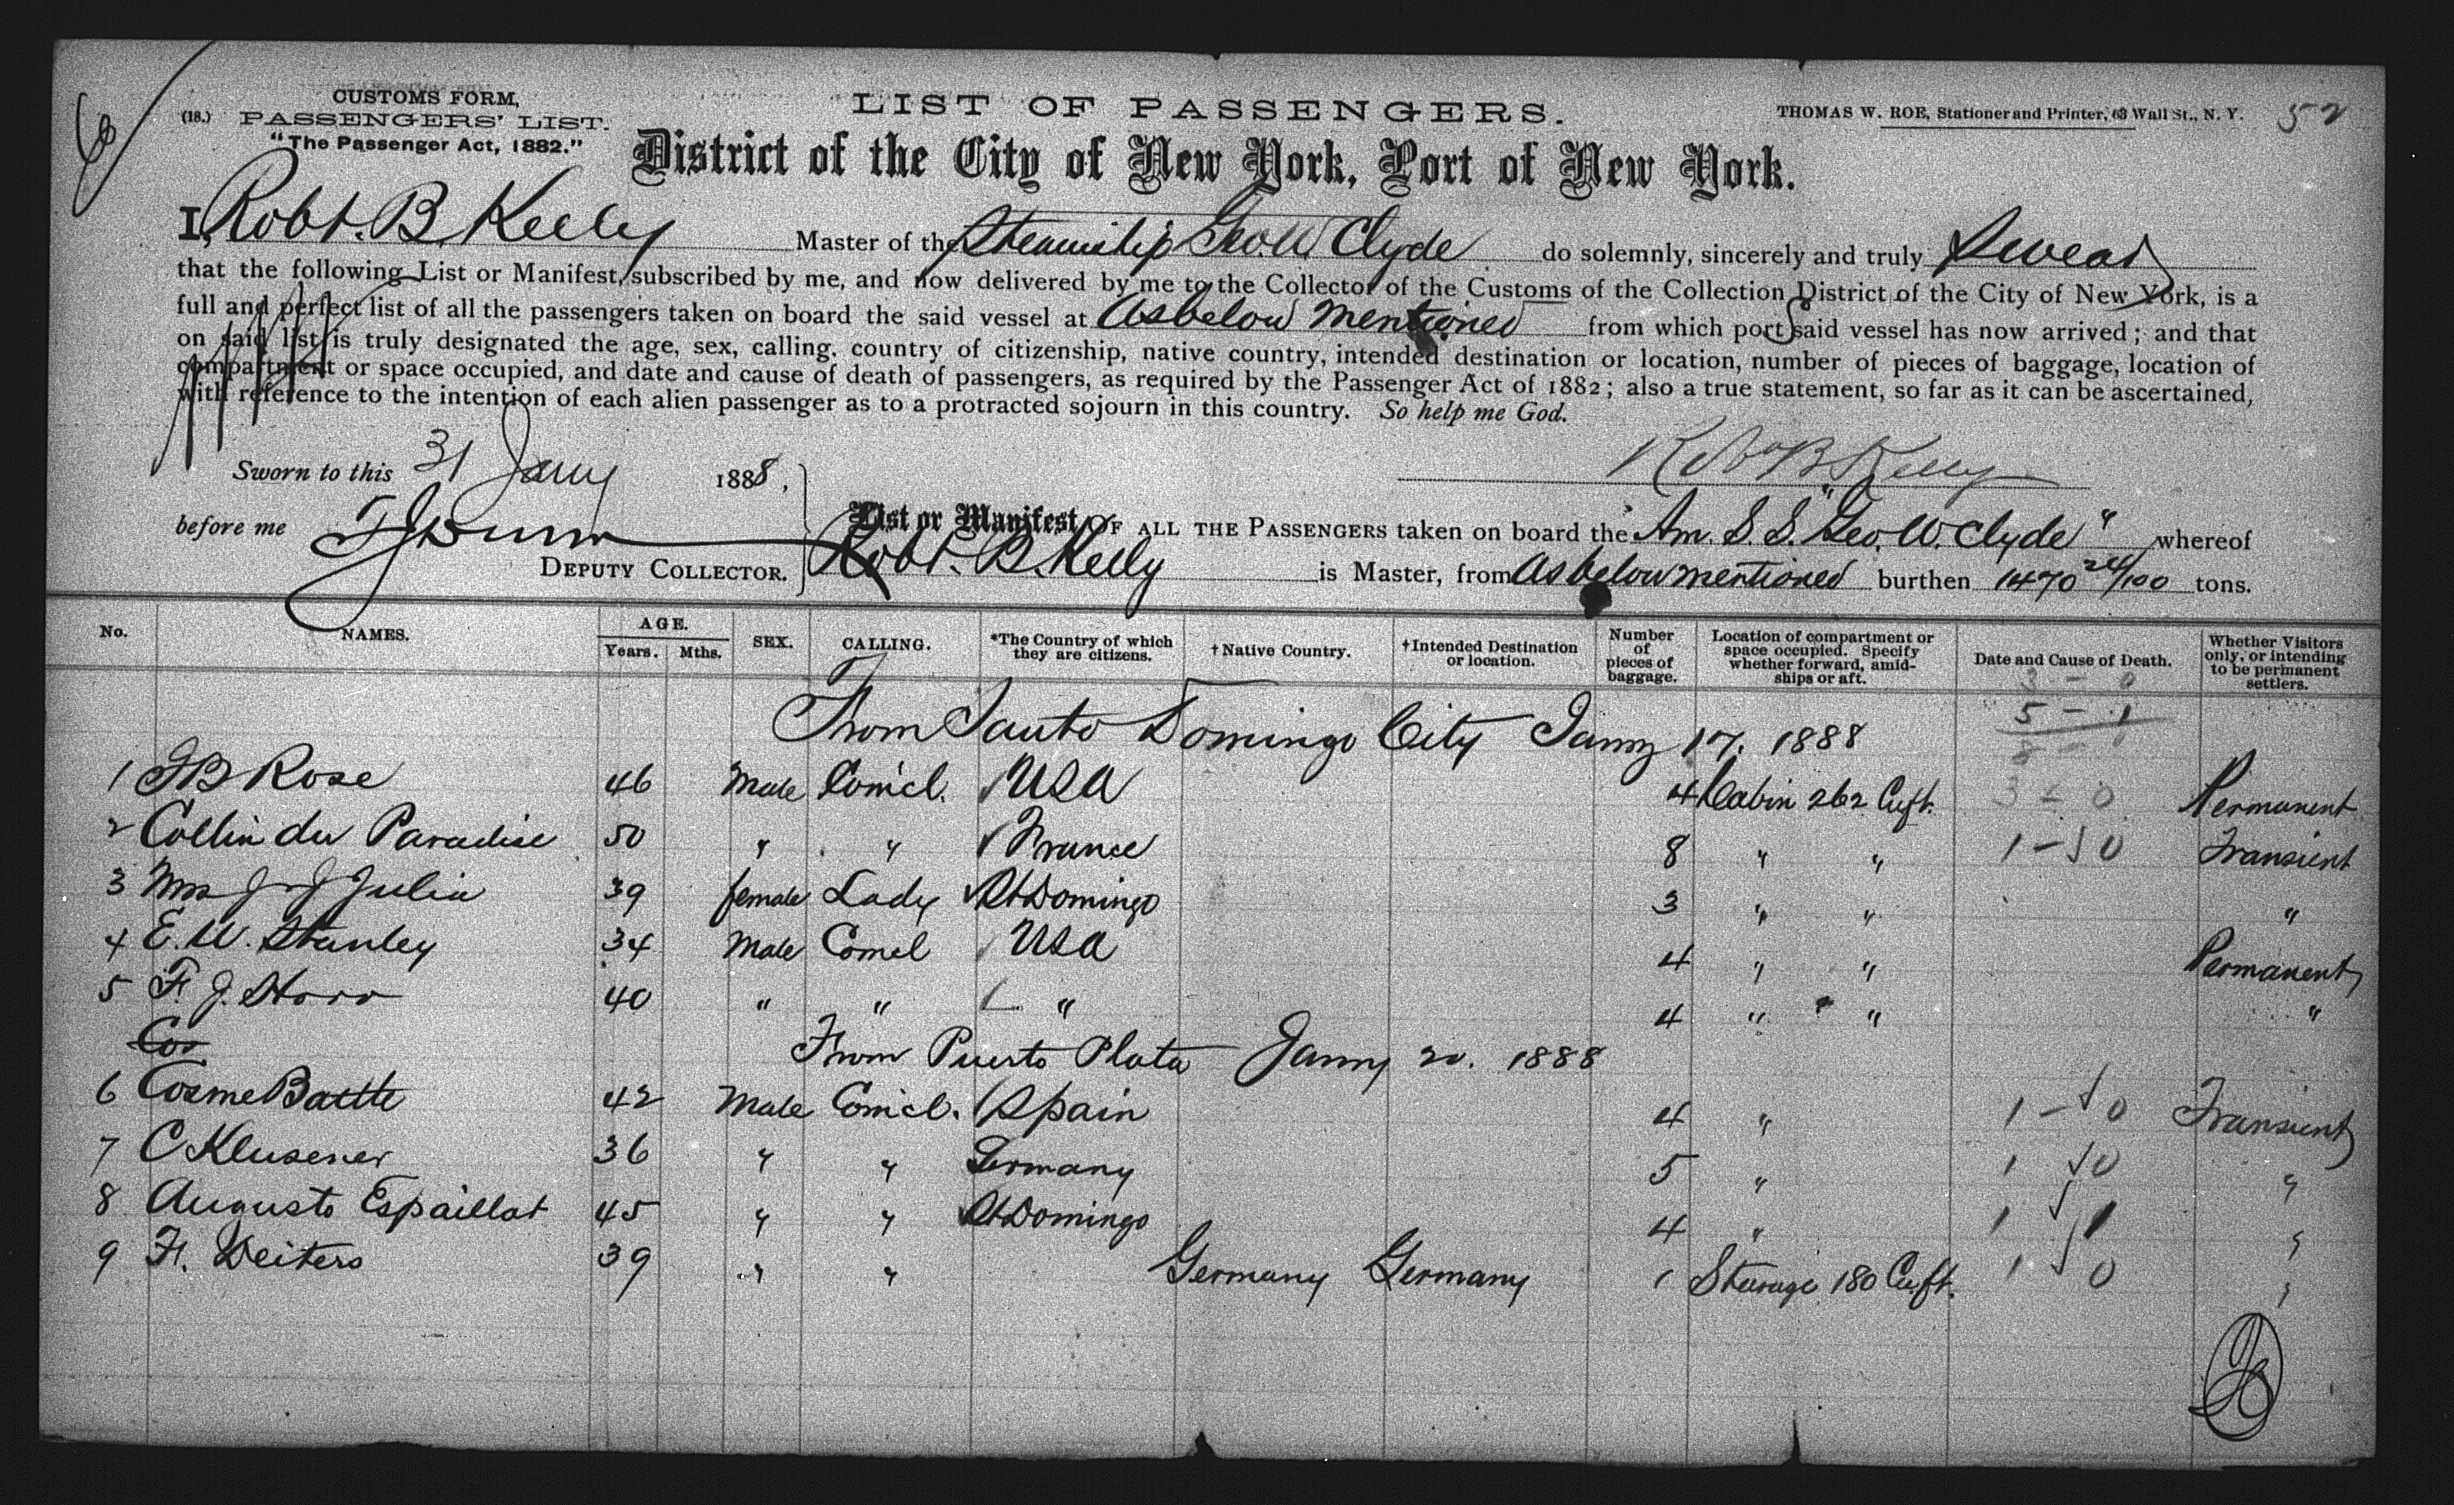 CUSTOMS FORM,
(18.) PASSENGERS' LIST.
"The Passenger Act, 1882."
LIST OF PASSENGERS.
THOMAS W. ROE, Stationer and Printer, 63 Wall St., N. Y.
52
District of the City of New York, Port of New York.
I, Robt. B. Kelly Master of the Steamship Geo. W. Clyde do solemnly, sincerely and truly Swear
that the following List or Manifest, subscribed by me, and now delivered by me to the Collector of the Customs of the Collection District of the City of New York, is a
full and perfect list of all the passengers taken on board the said vessel at As below mentioned from which port said vessel has now arrived; and that
on said list is truly designated the age, sex, calling, country of citizenship, native country, intended destination or location, number of pieces of baggage, location of
compartment or space occupied, and date and cause of death of passengers, as required by the Passenger Act of 1882; also a true statement, so far as it can be ascertained,
with reference to the intention of each alien passenger as to a protracted sojourn in this country. So help me God.
Sworn to this 31 Jany 1888,
Robt B Kelly
before me
DEPUTY COLLECTOR.
List or Manifest OF ALL THE PASSENGERS taken on board the Am. S. S. "Geo. W. Clyde" whereof
Robt. B. Kelly is Master, from As below mentioned burthen 1470 24/100 tons.
No. NAMES. AGE. Years. Mths. SEX. CALLING. *The Country of which they are citizens. †Native Country. †Intended Destination or location. Number of pieces of baggage. Location of compartment or space occupied. Specify whether forward, amidships or aft. Date and Cause of Death. Whether Visitors only, or intending to be permanent settlers.
3 - 0
5 - 1
8 -
From Santo Domingo City Janny 17. 1888
1 J B Rose 46 Male Comcl. USA 4 Cabin 262 Cuft. 3 - 0 Permanent
2 Collin du Paradise 50 " " France 8 " " 1 - 0 Transient
3 Mrs J. J. Julia 39 female Lady St Domingo 3 " " "
4 E. W. Stanley 34 Male Comcl USA 4 " " Permanent
5 F. J. Horr 40 " " " 4 " " "
Cos
From Puerto Plata Janny 20. 1888
6 Cosme Batlle 42 Male Comcl. Spain 4 " 1 - 0 Transient
7 C Klusener 36 " " Germany 5 " 1 0 "
8 Augusto Espaillat 45 " " St Domingo 4 " 1 1 "
9 H. Deiters 39 " " Germany Germany 1 Steerage 180 Cuft. 1 0 "